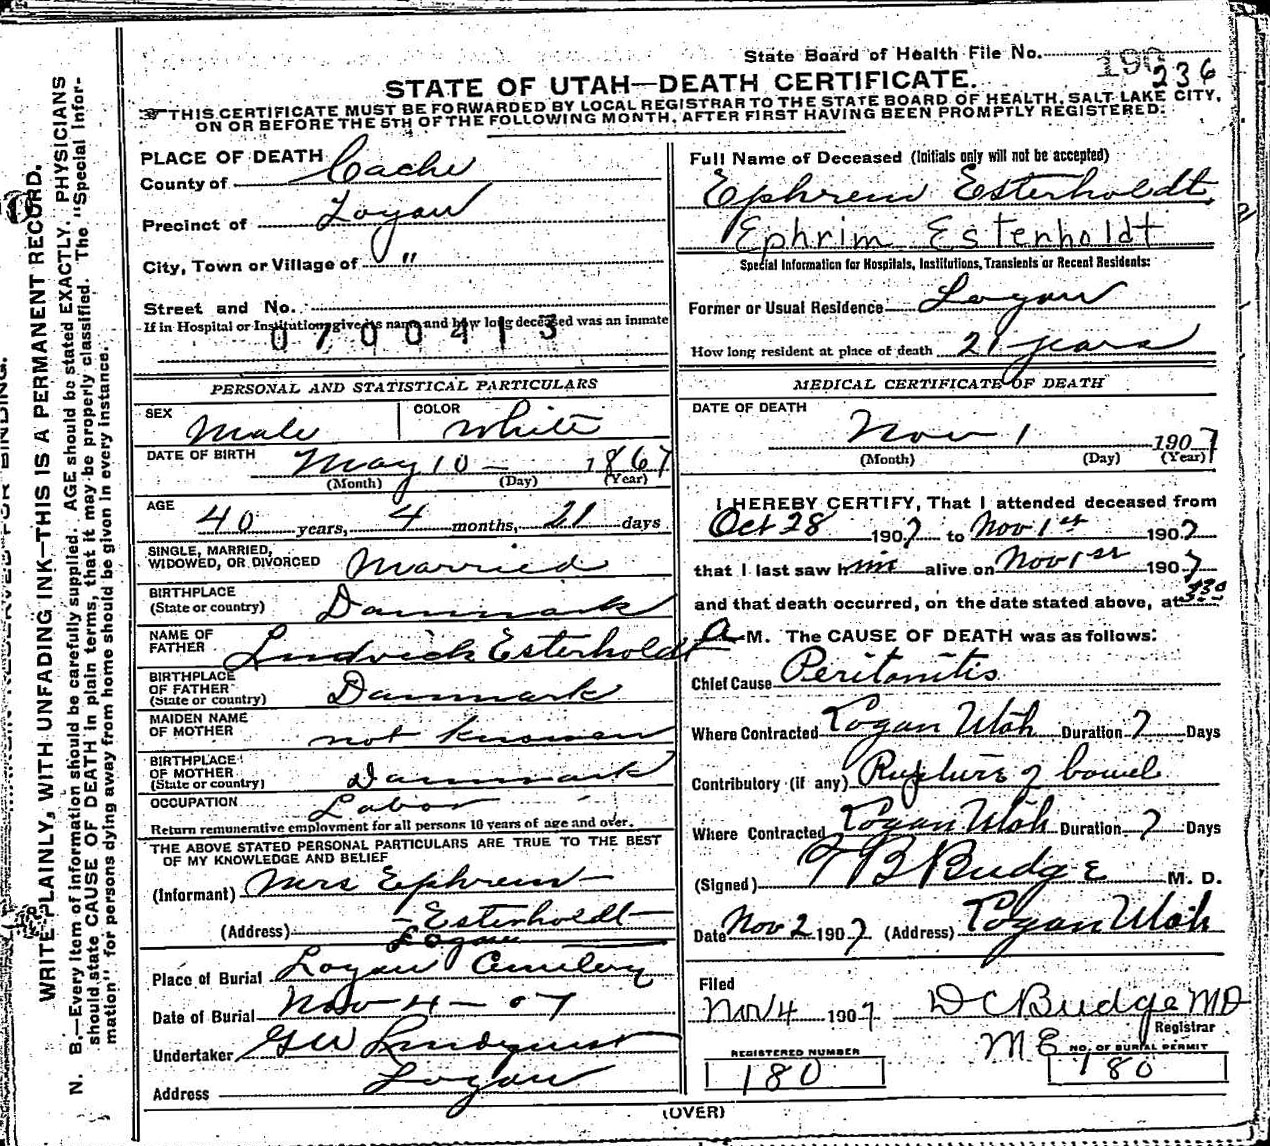 State Board of Health File No. 190 236
STATE OF UTAH—DEATH CERTIFICATE.
THIS CERTIFICATE MUST BE FORWARDED BY LOCAL REGISTRAR TO THE STATE BOARD OF HEALTH, SALT LAKE CITY,
ON OR BEFORE THE 5TH OF THE FOLLOWING MONTH, AFTER FIRST HAVING BEEN PROMPTLY REGISTERED.
WRITE PLAINLY, WITH UNFADING INK—THIS IS A PERMANENT RECORD.
N. B.—Every item of information should be carefully supplied. AGE should be stated EXACTLY. PHYSICIANS
should state CAUSE OF DEATH in plain terms, that it may be properly classified. The "Special Infor-
mation" for persons dying away from home should be given in every instance.
PLACE OF DEATH
County of Cache
Precinct of Logan
City, Town or Village of "
Street and No.
If in Hospital or Institution, give its name and how long deceased was an inmate
0700413
Full Name of Deceased (Initials only will not be accepted)
Ephrem Esterholdt
Ephrim Esterholdt
Special Information for Hospitals, Institutions, Transients or Recent Residents:
Former or Usual Residence Logan
How long resident at place of death 21 years
PERSONAL AND STATISTICAL PARTICULARS
SEX Male COLOR White
DATE OF BIRTH May 10 - 1867
(Month) (Day) (Year)
AGE 40 years, 4 months, 21 days
SINGLE, MARRIED,
WIDOWED, OR DIVORCED Married
BIRTHPLACE
(State or country) Danmark
NAME OF
FATHER Ludvick Esterholdt
BIRTHPLACE
OF FATHER
(State or country) Danmark
MAIDEN NAME
OF MOTHER not knowen
BIRTHPLACE
OF MOTHER
(State or country) Danmark
OCCUPATION Labor
Return remunerative employment for all persons 10 years of age and over.
THE ABOVE STATED PERSONAL PARTICULARS ARE TRUE TO THE BEST
OF MY KNOWLEDGE AND BELIEF
(Informant) Mrs Ephrem
- Esterholdt -
(Address) Logan
Place of Burial Logan Cemetery
Date of Burial Nov 4 - 07
Undertaker GW Lindquist
Address Logan
MEDICAL CERTIFICATE OF DEATH
DATE OF DEATH
Nov 1 1907
(Month) (Day) (Year)
I HEREBY CERTIFY, That I attended deceased from
Oct 28 1907 to Nov 1st 1907
that I last saw him alive on Nov 1st 1907
and that death occurred, on the date stated above, at 3:30
a M. The CAUSE OF DEATH was as follows:
Chief Cause Peritonitis
Where Contracted Logan Utah Duration 7 Days
Contributory (if any) Rupture of bowel
Where Contracted Logan Utah Duration 7 Days
(Signed) T B Budge M. D.
Date Nov 2 1907 (Address) Logan Utah
Filed
Nov 4 1907 D C Budge MD
Registrar
ME
REGISTERED NUMBER
180
NO. OF BURIAL PERMIT
180
(OVER)